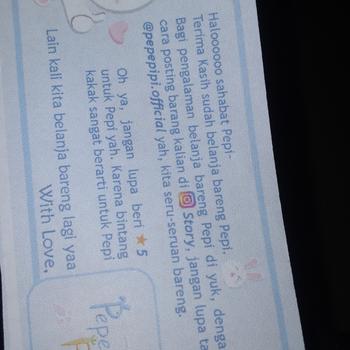 Haloooooo sahabat Pepi-
Terima Kasih sudah belanja bareng Pepi.
Bagi pengalaman belanja bareng Pepi di yuk, denga
cara posting barang kalian di Story, jangan lupa ta
@pepepipi.official yah, kita seru-seruan bareng.
Oh ya, jangan lupa beri ⭐ 5
untuk Pepi yah. Karena bintang
kakak sangat berarti untuk Pepi
Lain kali kita belanja bareng lagi yaa
With Love,
Pepe